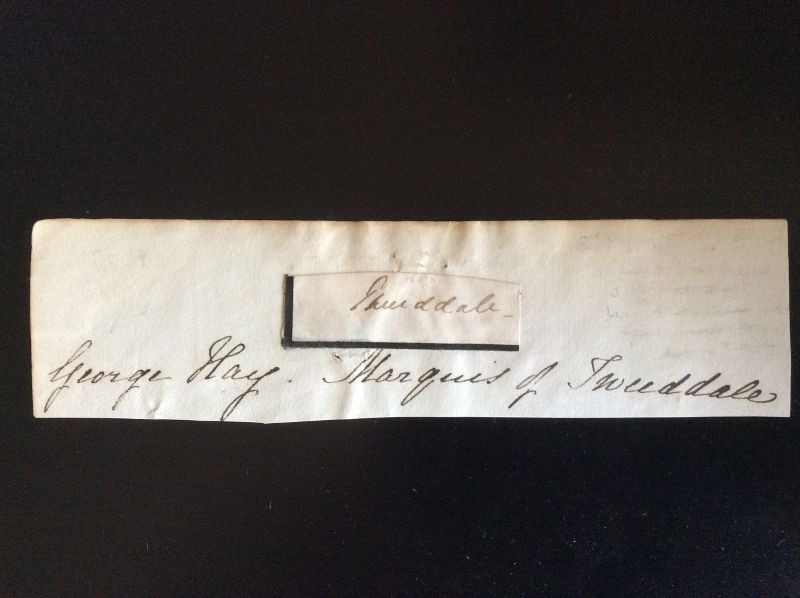 Tweeddale
George Hay. Marquis of Tweeddale